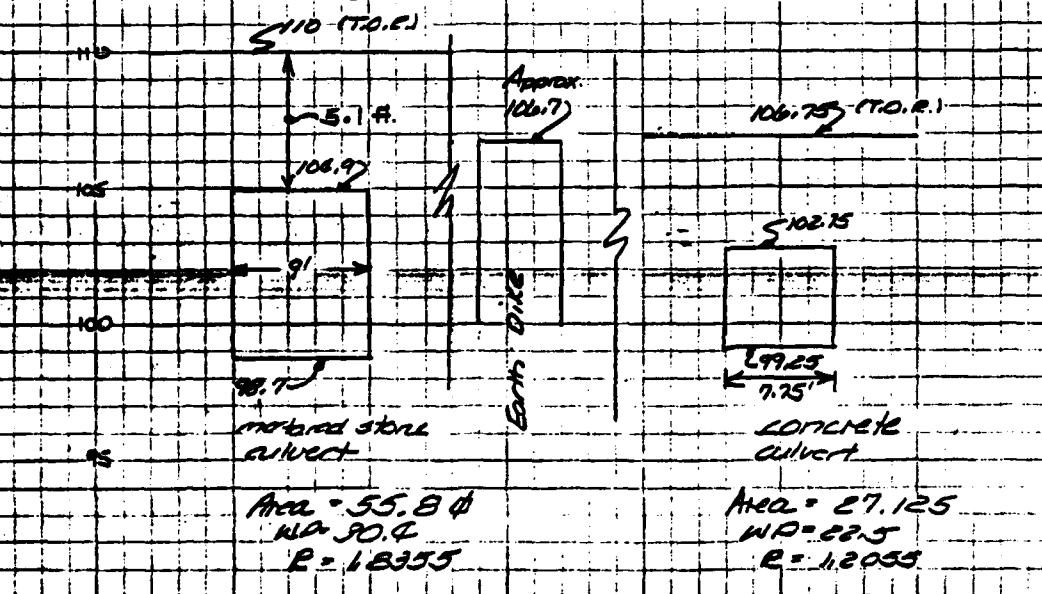 110 (T.O.R.)
110
5.1 ft.
104.9
105
9'
100
98.7
95
mortared stone
culvert
Area = 55.8 ⏍
WP= 30.4
R = 1.8355
Approx.
106.7
Earth Dike
106.75 (T.O.R.)
102.75
99.25
7.75'
concrete
culvert
Area = 27.125
WP = 22.5
R = 1.2055